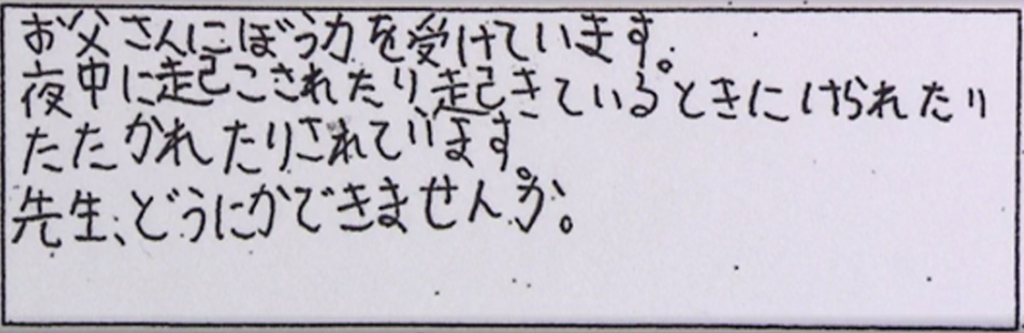 お父さんにぼう力を受けています。
夜中に起こされたり、起きているときにけられたり
たたかれたりされています。
先生、どうにかできませんか。